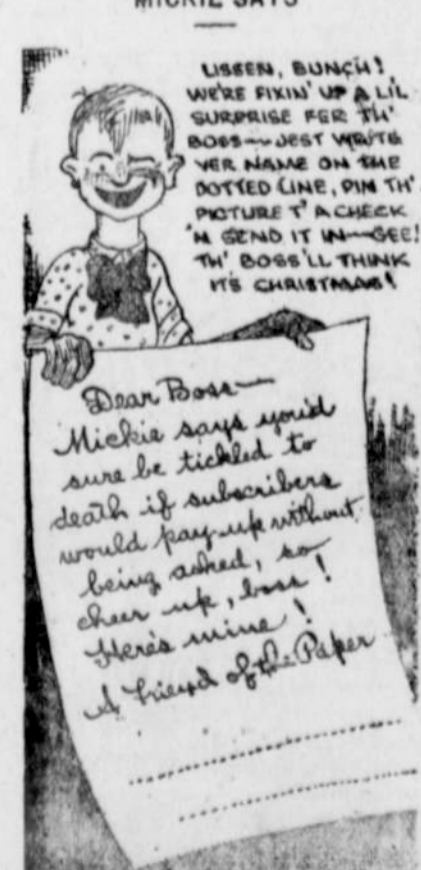 MICKIE SAYS
LISSEN, BUNCH!
WE'RE FIXIN' UP A LIL
SURPRISE FER TH'
BOSS—JEST WRITE
YER NAME ON THE
DOTTED LINE, PIN TH'
PICTURE T' A CHECK
'N SEND IT IN—GEE!
TH' BOSS'LL THINK
IT'S CHRISTMAS!
Dear Boss—
Mickie says you'd
sure be tickled to
death if subscribers
would pay up without
being asked, so
cheer up, boss!
Here's mine!
A Friend of the Paper